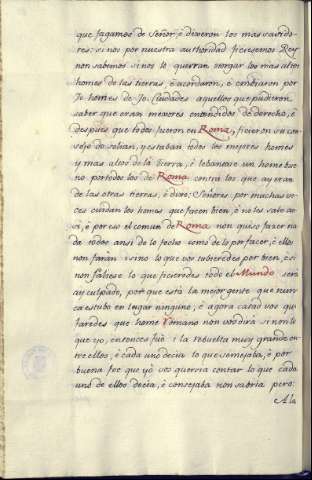 que fagamos de Señor, é dixeron los mas sacerdo-
tes: si nos por nuestra authoridad ficiesemos Rey
non sabemos si nos lo querran otorgar los mas altos
homes de las tierras é acordaron, é embiaron por
homes de Ciudades aquellos que pudieron
saber que eran meiores entendidos de derecho, é
despues que todos fueron en Roma, ficieron su con-
sejo do solian, y estaban todos los mejores homes
y mas altos de la tierra, é lebantose un home bue-
no por todos los de Roma contra los que ay eran
de las otras tierras, é dixo: Señores por muchas ve-
ces cuidan los homes que facen bien, é no les sale an-
si, é por eso el comun de Roma non quiso facer na-
da todos annos de lo fecho como de lo por facer, é ellos
non faràn sino lo que vos tubieredes por bien, é si
non fuese lo que ficieredes todo el Mundo serà
ay culpado, por que està la mejor gente que nun-
ca estuba en lugar ninguno, é agora catad vos que
faredes que home Romano non vos dirà si non lo
que yo, entonces fuè la rebuelta muy grande en-
tre ellos, é cada uno decia lo que semejaba, é por
buena fee que yò vos querria contar lo que cada
uno de ellos decia, é consejaba non sabria pero:
A la